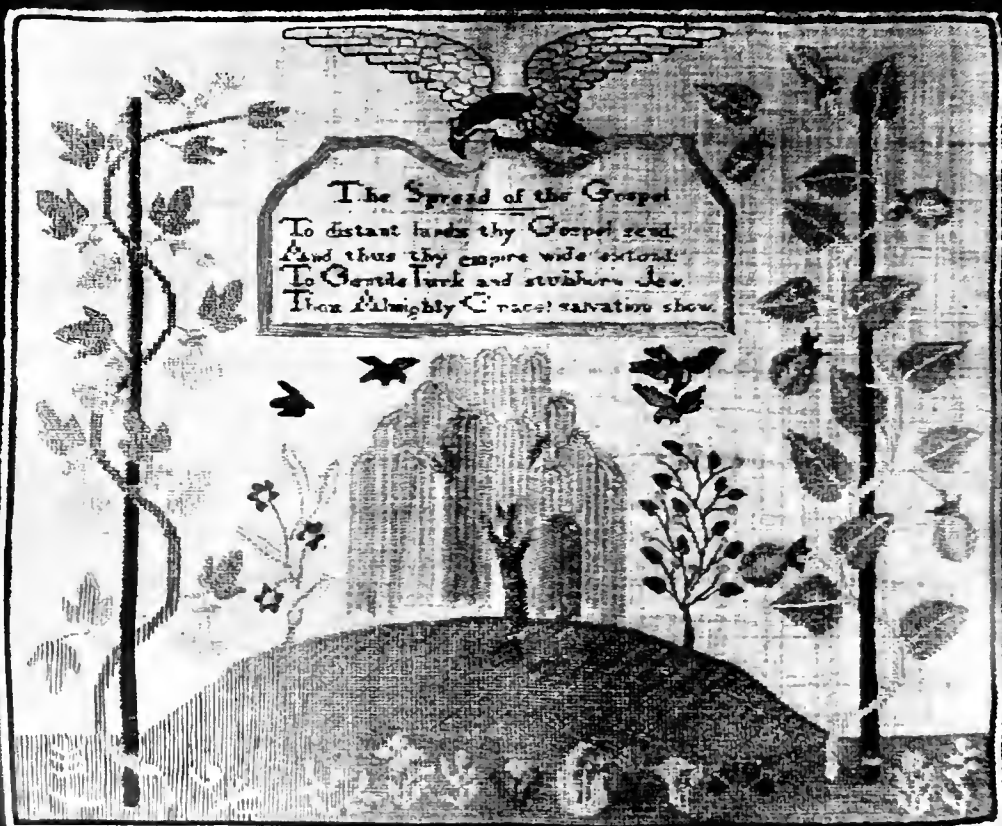 The Spread of the Gospel
To distant lands thy Gospel send,
And thus thy empire wide extend;
To Gentile Turk and stubborn Jew,
Thou Almighty Grace! salvation show.